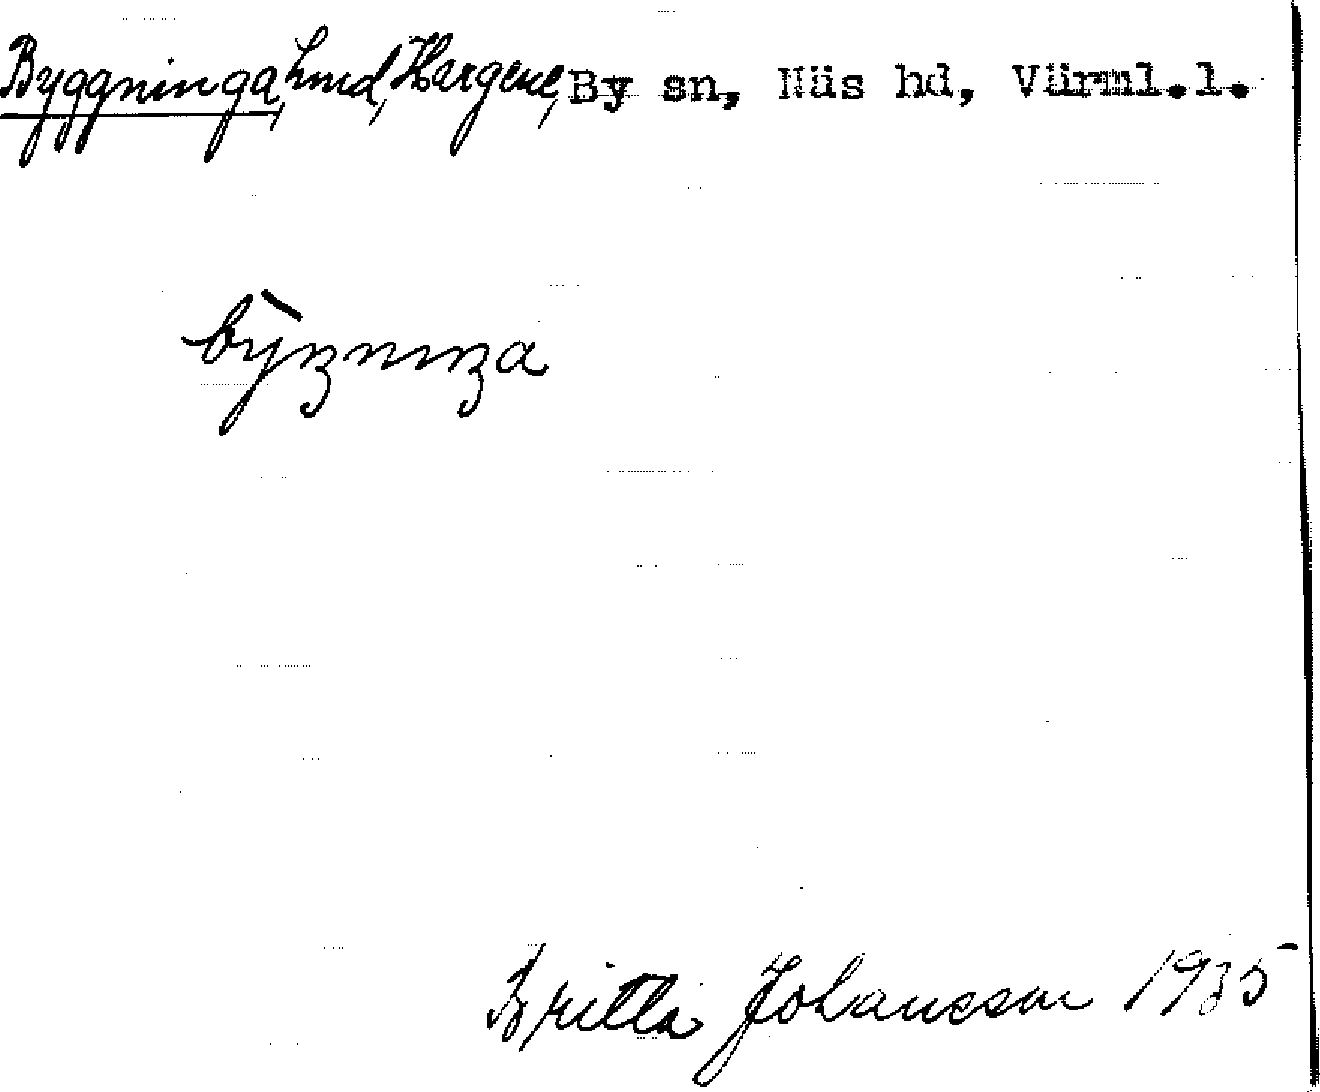 Byggninga, hmd, Hargene, By sn, Näs hd, Värml.l.
bỳŋnıŋa
Britta Johansson 1935